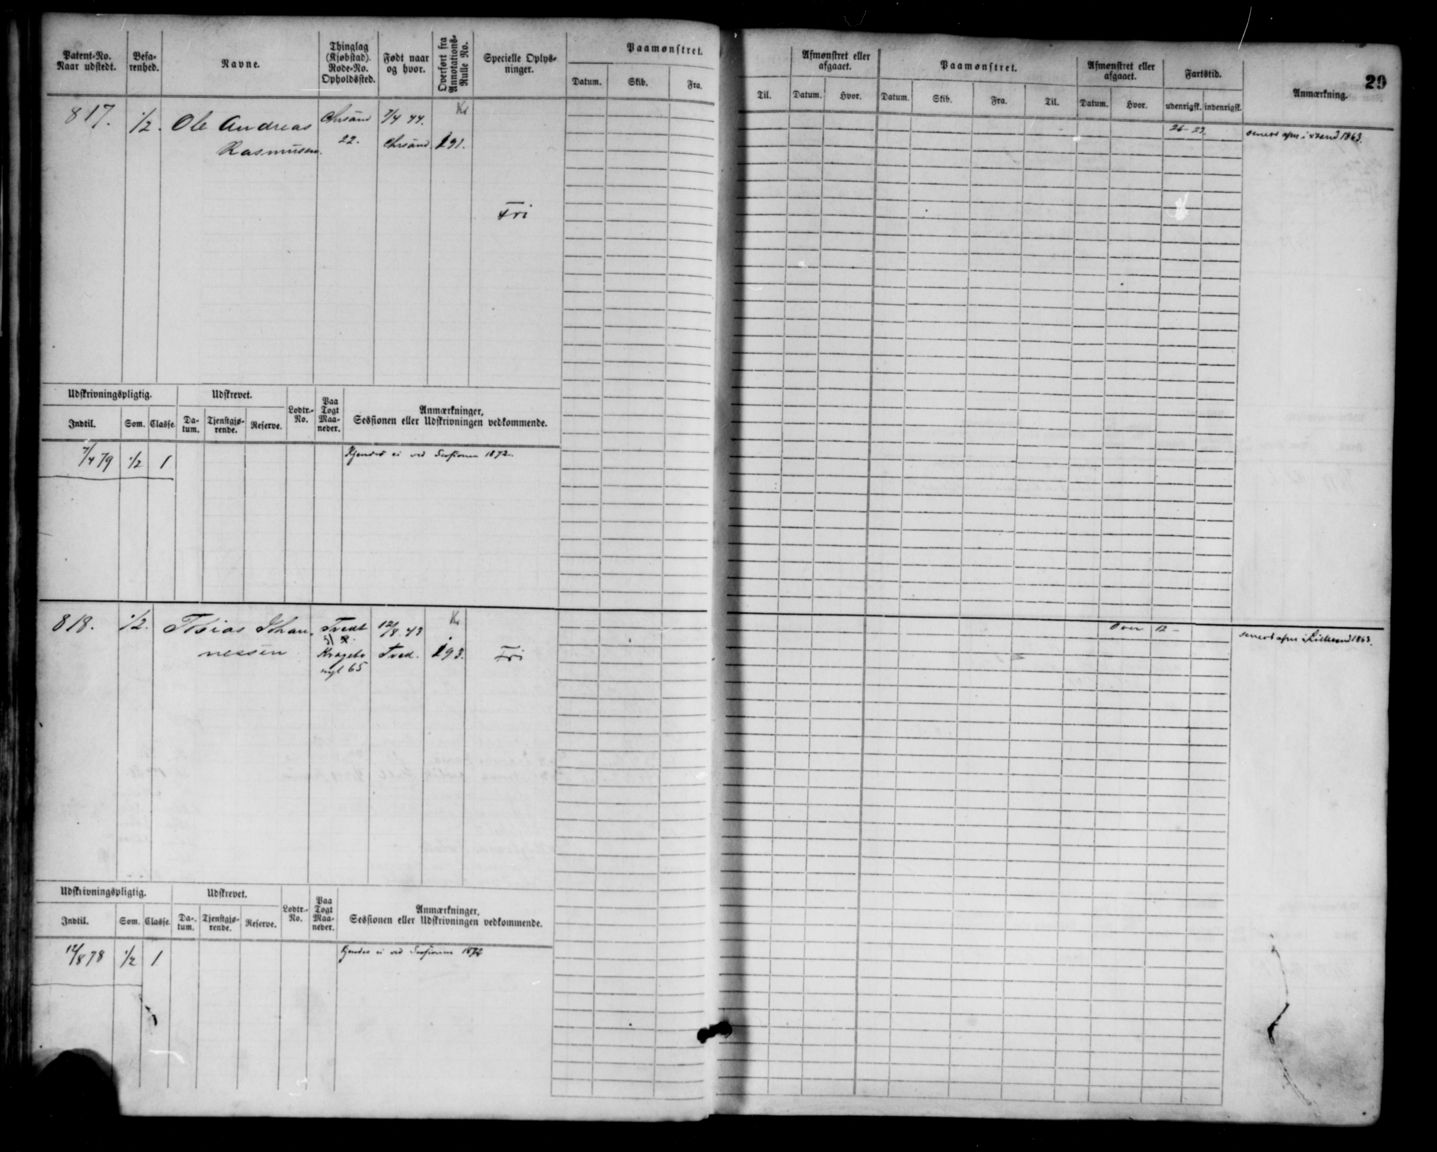 Patent-No. Naar udstedt.
Befa- renhed.
Navne.
Thinglag (Kjøbstad). Rode-No. Opholdssted.
Født naar og hvor.
Overført fra Annotations- Rulle No.
Specielle Oplys- ninger.
Paamønstret.
Datum. Skib. Fra.
Til.
Afmønstret eller afgaaet.
Datum. Hvor.
Paamønstret.
Datum. Skib. Fra. Til.
Afmønstret eller afgaaet.
Datum. Hvor.
Fartstid.
udenrigsk. indenrigsk.
Anmærkning.
29
817. 1/2. Ole Andreas Chrsand 7/4 44. Kr
Rasmussen. 22. Chrsand 191.
Fri
26 - 23.
1863.
Udskrivningspligtig. Udskrevet. Lodtr.- No. Paa Togt Maa- neder. Anmærkninger, Sessionen eller Udskrivningen vedkommende.
Indtil. Som. Classe. Da- tum. Tjenstgjø- rende. Reserve.
7/4 79 1/2 1 Kjendes ei ved Sessionen 1872.
818. 1/2. Johan- Tvedt 12/8 43 Kr
nessen Tved. 193. Fri
65
over 12 -
1863.
Udskrivningspligtig. Udskrevet. Lodtr.- No. Paa Togt Maa- neder. Anmærkninger, Sessionen eller Udskrivningen vedkommende.
Indtil. Som. Classe. Da- tum. Tjenstgjø- rende. Reserve.
12/8 78 1/2 1 Kjendes ei ved Sessionen 1872